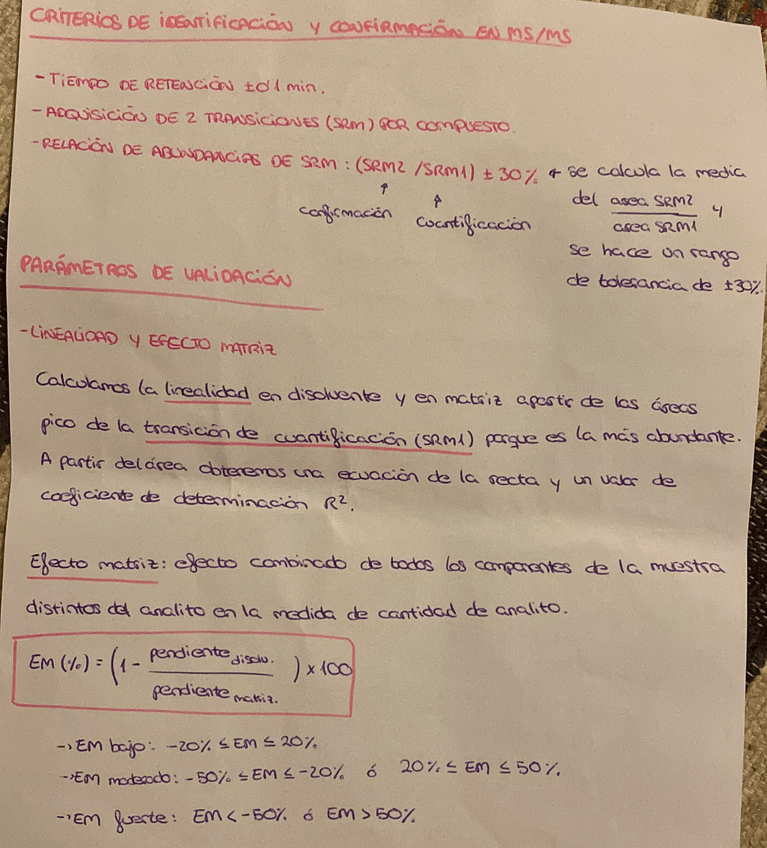 CRITERIOS DE IDENTIFICACIÓN Y CONFIRMACIÓN EN MS/MS
- TIEMPO DE RETENCIÓN ±0'1 min.
- ADQUISICIÓN DE 2 TRANSICIONES (SRM) POR COMPUESTO.
- RELACIÓN DE ABUNDANCIAS DE SRM : (SRM2 /SRM1) ± 30% → se calcula la media
del area SRM2 / area SRM1 y
↑ confirmación ↑ cuantificación
se hace un rango
de tolerancia de ±30%.
PARÁMETROS DE VALIDACIÓN
- LINEALIDAD Y EFECTO MATRIZ
Calculamos la linealidad en disolvente y en matriz a partir de las áreas
pico de la transición de cuantificación (SRM1) porque es la más abundante.
A partir del área obtenemos una ecuación de la recta y un valor de
coeficiente de determinación R².
Efecto matriz: efecto combinado de todos los componentes de la muestra
distintos del analito en la medida de cantidad de analito.
EM (%) = (1 - pendiente disolv. / pendiente matriz. ) x 100
→ EM bajo: -20% ≤ EM ≤ 20%
→ EM moderado: -50% ≤ EM ≤ -20% ó 20% ≤ EM ≤ 50%.
→ EM fuerte: EM < -50% ó EM > 50%